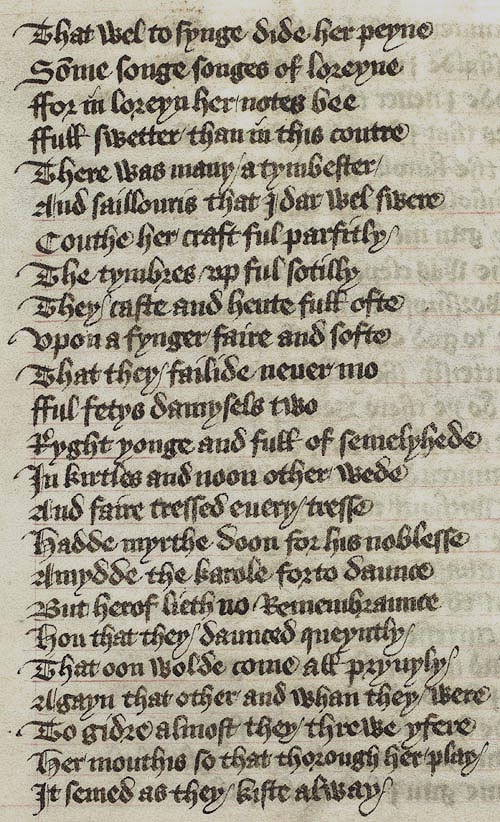 That wel to synge dide her peyne
Some songe songes of loreyne
ffor in loreyn her notes bee
ffull swetter than in this contre
There was many a tymbester
And saillouris that I dar wel swere
Couthe her craft ful parfitly
The tymbres vp ful sotilly
They caste and hente full ofte
vpon a fynger faire and softe
That they failide never mo
fful fetys damysels two
Ryght yonge and full of semelyhede
In kirtles and noon other wede
And faire tressed euery tresse
Hadde myrthe doon for his noblesse
Amydde the karole forto daunce
But herof lieth no Remembraunce
Hou that they daunced queyntly
That oon wolde come all pryuyly
Agayn that other and whan they were
To gidre almost they threwe yfere
Her mouthis so that thorough her play
It semed as they kiste alway